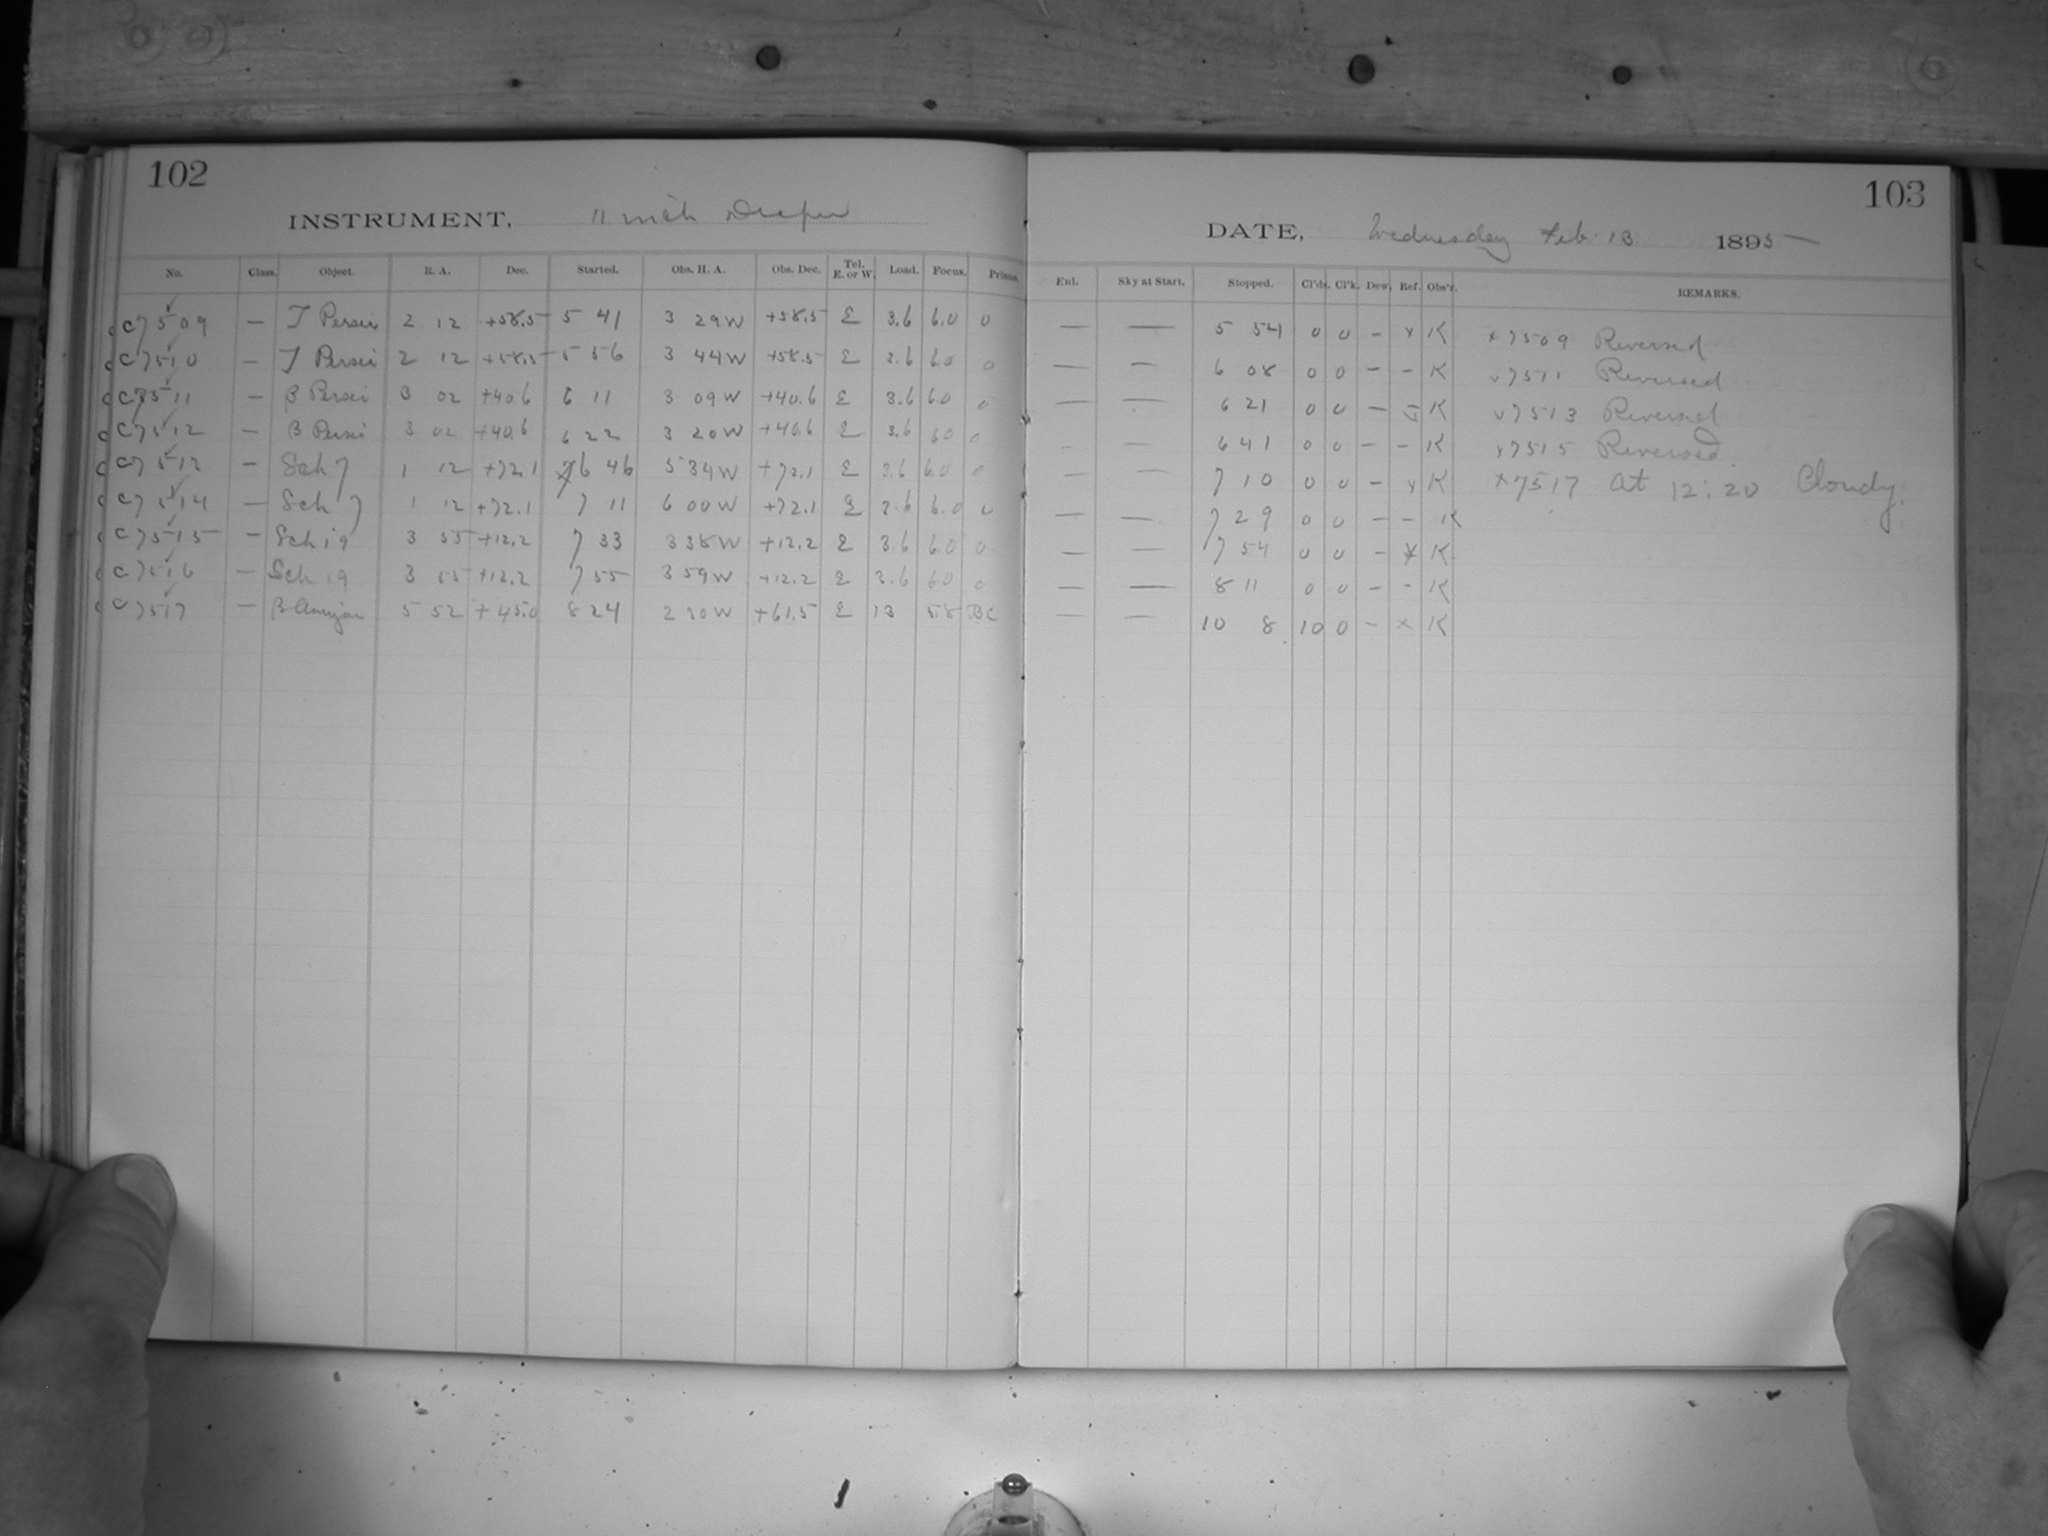 102
INSTRUMENT, 11 inch Draper
No. Class. Object. R. A. Dec. Started. Obs. H. A. Obs. Dec. Tel. E. or W. Load. Focus. Prisms.
C7509 — T Persei 2 12 +58.5 5 41 3 29W +58.5 E 3.6 6.0 0
C7510 — T Persei 2 12 +58.5 5 56 3 44W +58.5 E 3.6 6.0 0
C7511 — β Persei 3 02 +40.6 6 11 3 09W +40.6 E 3.6 6.0 0
C7512 — β Persei 3 02 +40.6 6 22 3 20W +40.6 E 3.6 6.0 0
C7512 — Sch 7 1 12 +72.1 6 46 5 34W +72.1 E 3.6 6.0 0
C7514 — Sch 7 1 12 +72.1 7 11 6 00W +72.1 E 3.6 6.0 0
C7515 — Sch 19 3 55 +12.2 7 33 3 38W +12.2 E 3.6 6.0 0
C7516 — Sch 19 3 55 +12.2 7 55 3 59W +12.2 E 3.6 6.0 0
C7517 — β Aurigae 5 52 +45.0 8 24 2 30W +61.5 E 13 5.8 BC
103
DATE, Wednesday Feb. 13 1895
Enl. Sky at Start. Stopped. Cl'ds. Cl'k. Dew. Ref. Obs'r. REMARKS.
— — 5 54 0 0 – x K x7509 Reversed
— — 6 08 0 0 – – K x7511 Reversed
— — 6 21 0 0 — x K x7513 Reversed
– — 6 41 0 0 – – K x7515 Reversed.
— — 7 10 0 0 – x K x7517 At 12:20 Cloudy.
— — 7 29 0 0 – – K
— — 7 54 0 0 – x K
— — 8 11 0 0 – - K
— — 10 8 10 0 – x K